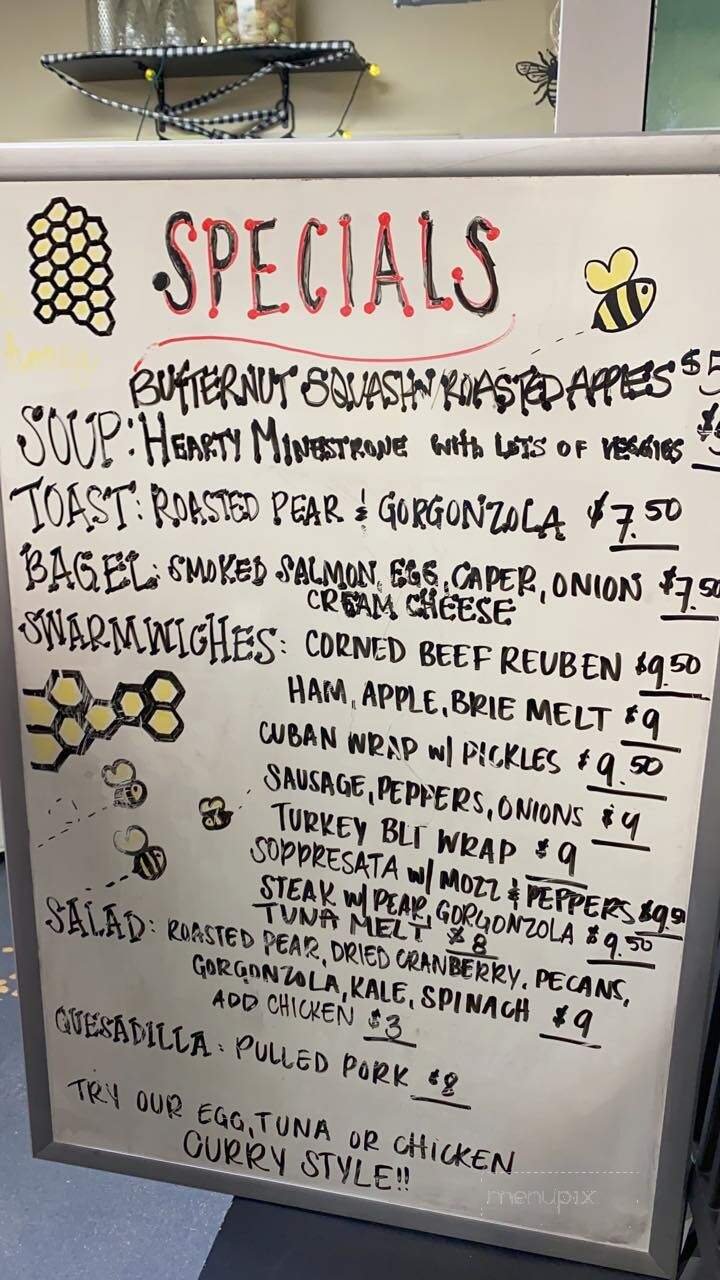 SPECIALS
BUTTERNUT SQUASH W/ ROASTED APPLES $5
SOUP: HEARTY MINESTRONE WITH LOTS OF VEGGIES
TOAST: ROASTED PEAR & GORGONZOLA $7.50
BAGEL: SMOKED SALMON, EGG, CAPER, ONION $7.50
CREAM CHEESE
SWARMWICHES: CORNED BEEF REUBEN $9.50
HAM, APPLE, BRIE MELT $9
CUBAN WRAP W/ PICKLES $9.50
SAUSAGE, PEPPERS, ONIONS $9
TURKEY BLT WRAP $9
SOPPRESATA W/ MOZZ & PEPPERS $9.50
STEAK W/ PEAR, GORGONZOLA $9.50
TUNA MELT $8
SALAD: ROASTED PEAR, DRIED CRANBERRY, PECANS,
GORGONZOLA, KALE, SPINACH $9
ADD CHICKEN $3
QUESADILLA: PULLED PORK $8
TRY OUR EGG, TUNA OR CHICKEN
CURRY STYLE!!
menupix